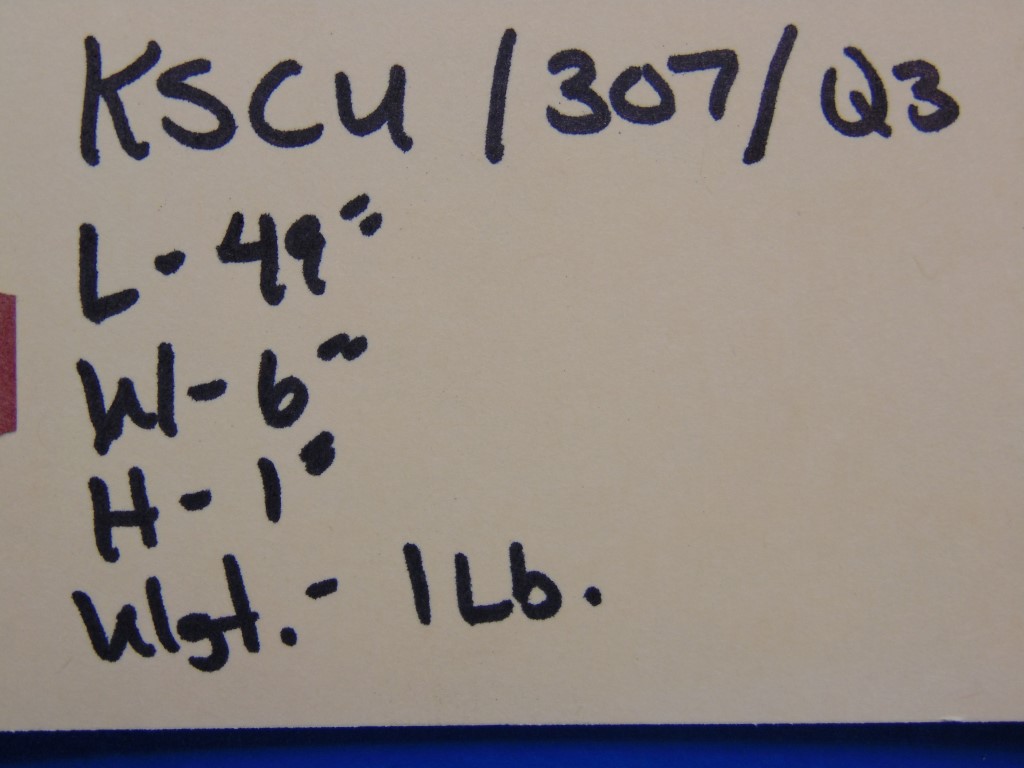 KSCU /307/Q3
L- 49"
W- 6"
H- 1"
Wgt.- 1 Lb.